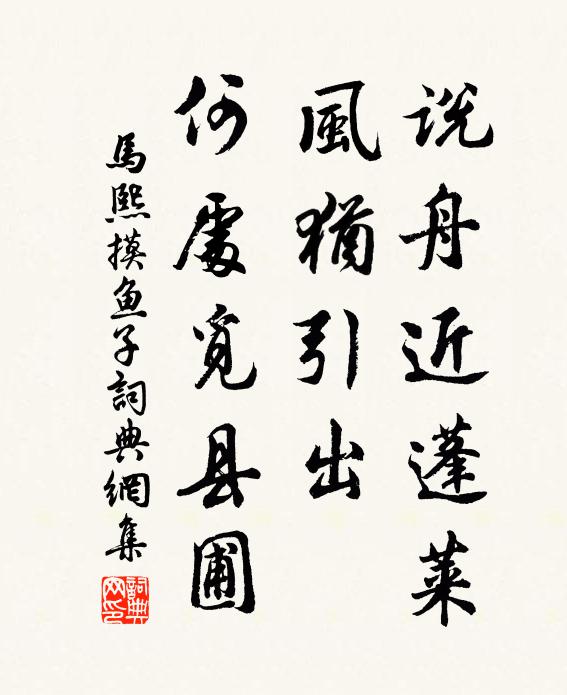 説舟近蓬莱
風猶引出
何處覓县圃
馬熙摸魚子詞典網集
詞典网印